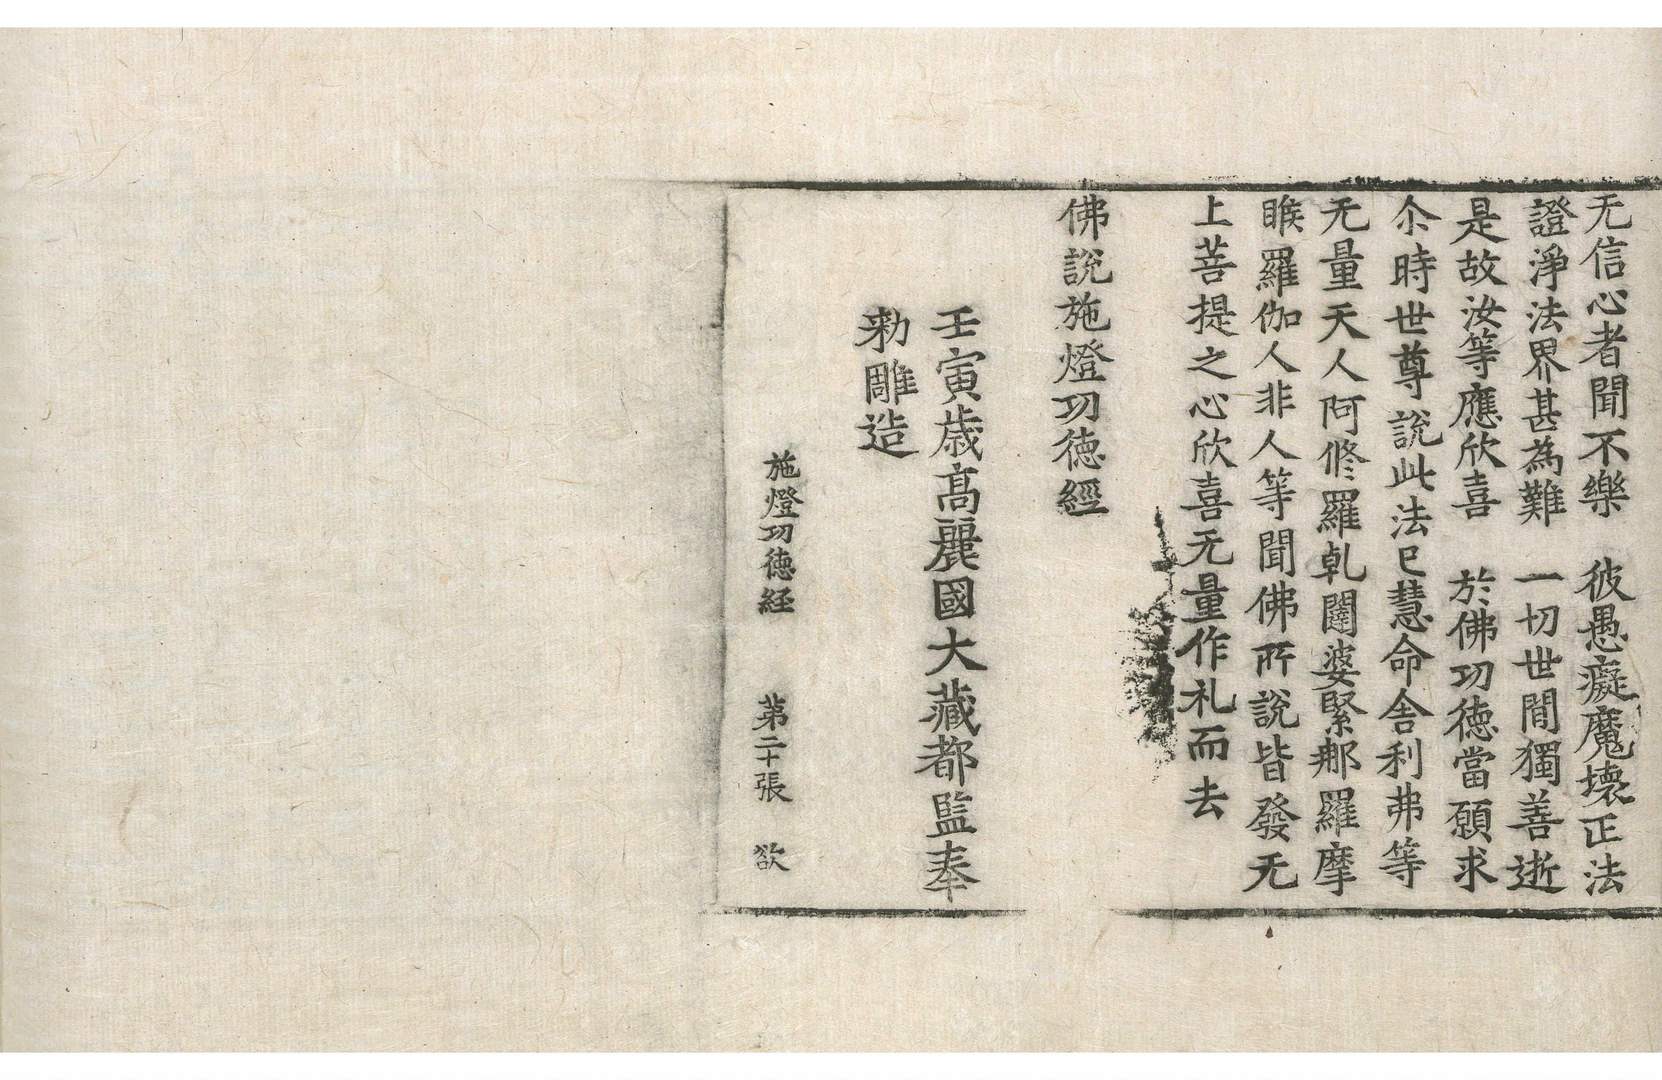 无信心者聞不樂　彼愚癡魔壞正法
證淨法界甚為難　一切世間獨善逝
是故汝等應欣喜　於佛功德當願求
尒時世尊說此法已慧命舍利弗等
无量天人阿修羅乹闥婆緊那羅摩
睺羅伽人非人等聞佛所說皆發无
上菩提之心欣喜无量作礼而去
佛說施燈功德經
壬寅歲高麗國大藏都監奉
勑雕造
施燈功德経　第二十張　欲